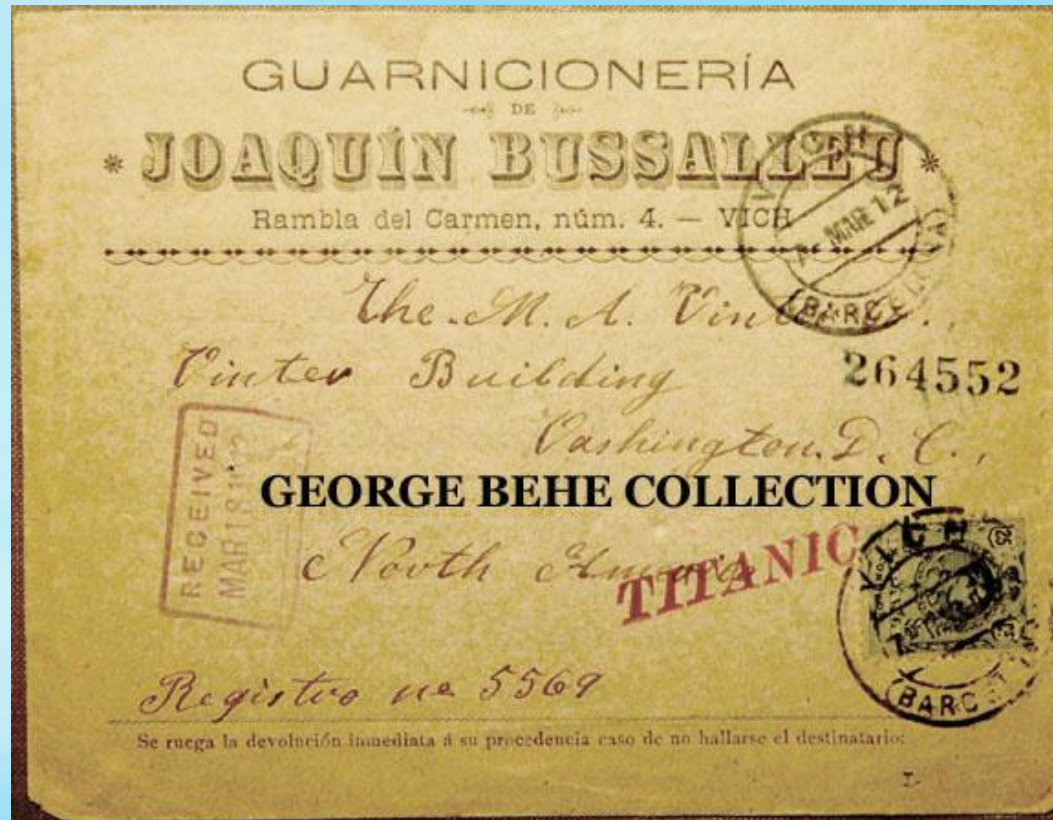 GUARNICIONERÍA
DE
* JOAQUÍN BUSSALLEU *
Rambla del Carmen, núm. 4. — VICH
MAR 12
(BARCELONA)
The M. A.
Vinter Building
264552
Washington. D. C.,
RECEIVED
MAR 18
GEORGE BEHE COLLECTION
North America
TITANIC
VICH
(BARCE
Registro no 5569
Se ruega la devolución inmediata á su procedencia caso de no hallarse el destinatario: